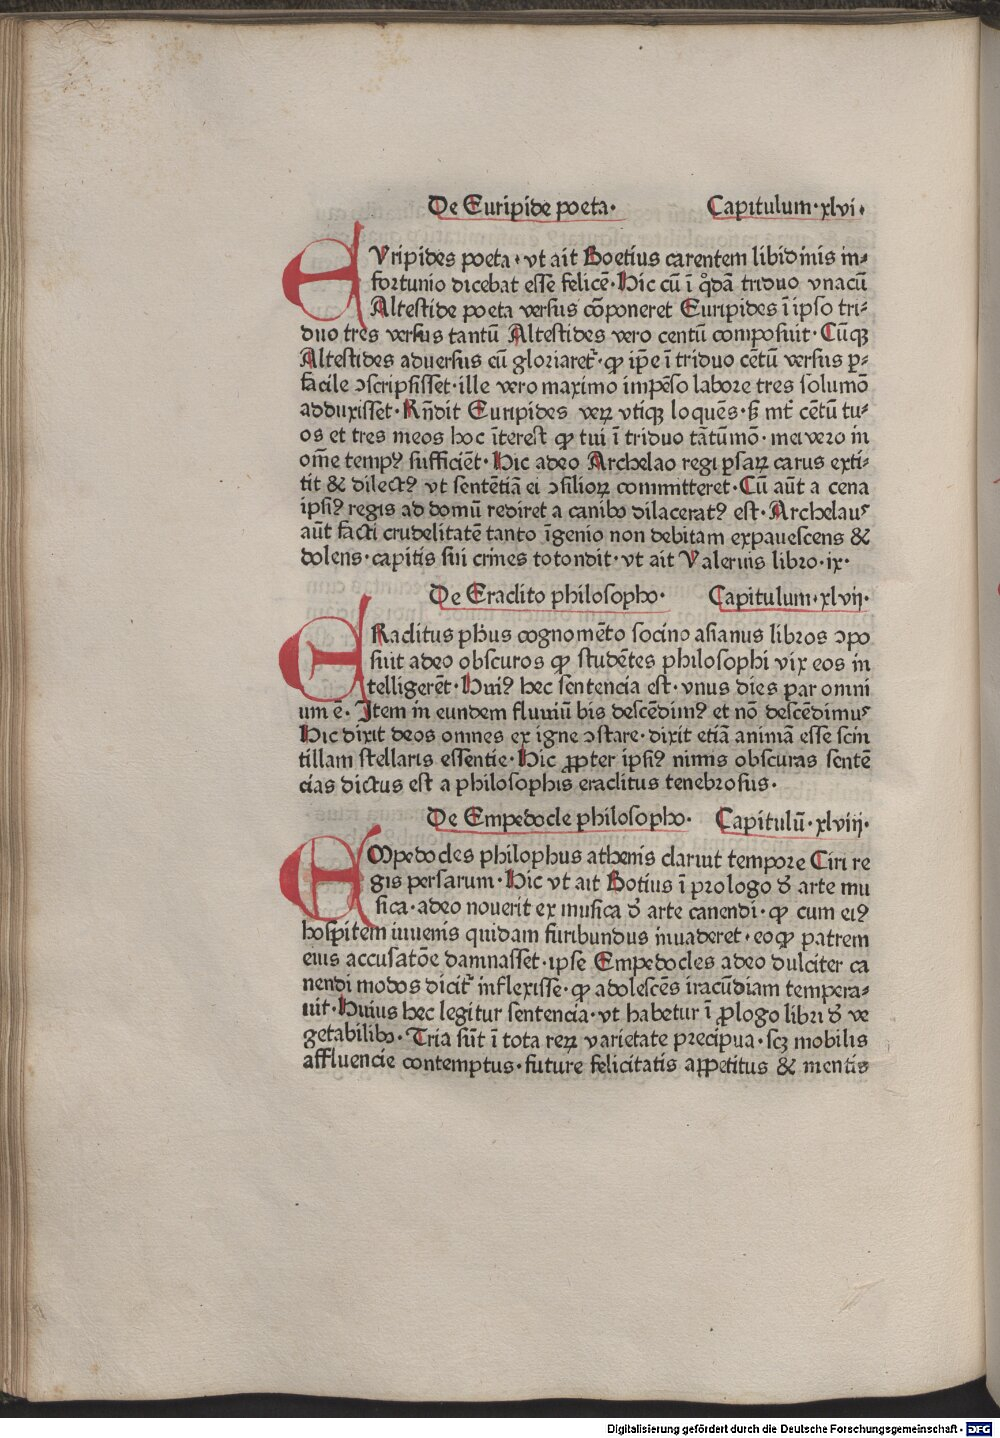 De Euripide poeta· Capitulum·xlvi·
EVripides poeta·vt ait Boetius carentem libidinis in-
fortunio dicebat esse felicē·Hic cū ī qͦdā triduo vnacū
Altestide poeta versus cōponeret Euripides ī ipso tri-
duo tres versus tantū Altestides vero centū composuit·Cūqꝫ
Altestides aduersus eū gloriaret᷑·ꝙ ip̄e ī triduo cētū versus ꝑ-
facile ↄscripsisset·ille vero maximo impēso labore tres solumō
adduxisset·Rn̄dit Euripides veꝝ vtiqꝫ loquēs·ꝭ mt᷑ cētū tu-
os et tres meos hoc īterest ꝙ tui ī triduo tātūmō·mei vero in
om̄e tempꝰ sufficiēt·Hic adeo Archelao regi ꝑsaꝝ carus exti-
tit & dilectꝰ vt sentētiā ei ↄsilioꝝ committeret·Cū aūt a cena
ipsiꝰ regis ad domū rediret a canibo dilaceratꝰ est·Archelauꝰ
aūt facti crudelitatē tanto īgenio non debitam expauescens &
dolens·capitis sui crines totondit·vt ait Valerius libro·ix·
De Eraclito philosopho· Capitulum·xlvii·
ERaclitus ph̄us cognomēto socino asianus libros ↄpo
suit adeo obscuros ꝙ studētes philosophi vix eos in
telligerēt·Huiꝰ hec sentencia est·vnus dies par omni
um ē·Item in eundem fluuiū bis descēdimꝰ et nō descēdimuꝰ
Hic dixit deos omnes ex igne ↄstare·dixit etiā animā esse scin
tillam stellaris essentie·Hic ꝓpter ipsiꝰ nimis obscuras sentē
cias dictus est a philosophis eraclitus tenebrosus·
De Empedocle philosopho· Capitulū·xlviii·
EMpedocles philophus athenis claruit tempore Ciri re
gis persarum·Hic vt ait Botius ī prologo đ arte mu
sica·adeo nouerit ex musica đ arte canendi·ꝙ cum eiꝰ
hospitem iuuenis quidam furibundus inuaderet·eoꝙ patrem
eius accusatōe damnasset·ipse Empedocles adeo dulciter ca
nendi modos dicit᷑ inflexisse·ꝙ adolescēs iracūdiam tempera-
uit·Huius hec legitur sentencia·vt habetur ī ꝓlogo libri đ ve
getabilibo·Tria sūt ī tota reꝝ varietate precipua·scꝫ mobilis
affluencie contemptus·future felicitatis appetitus & mentis
Digitalisierung gefördert durch die Deutsche Forschungsgemeinschaft - DFG